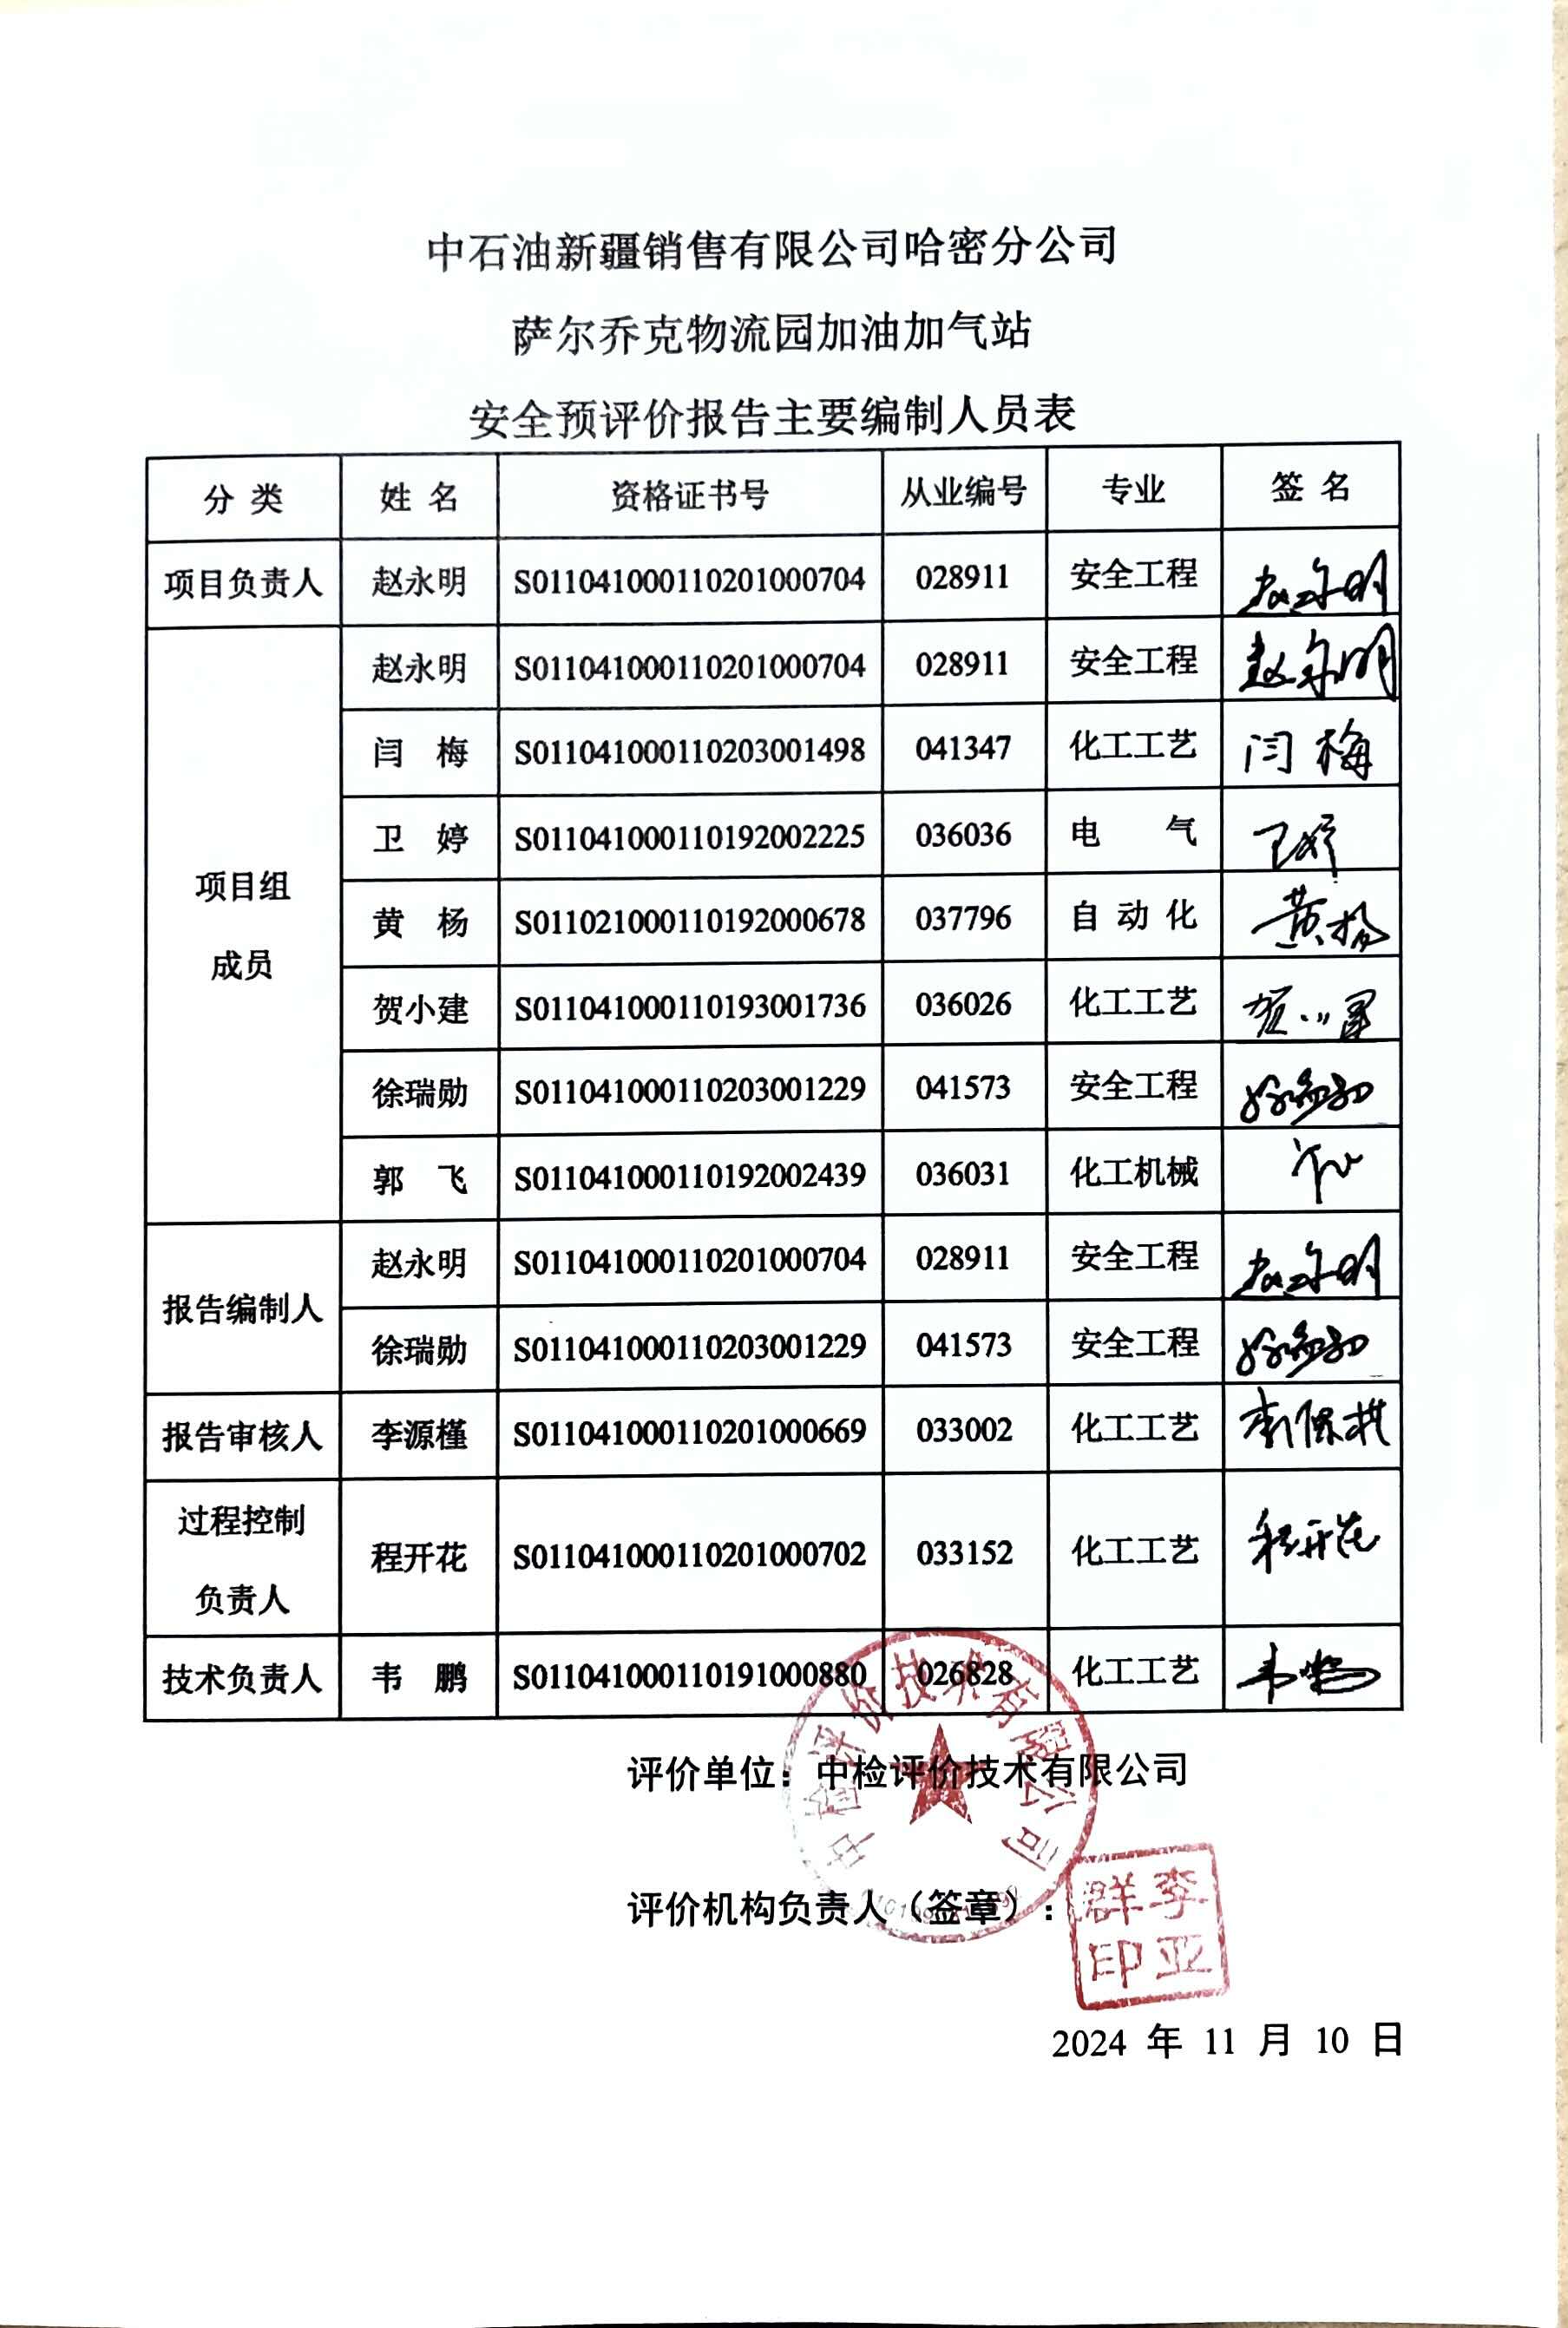 中石油新疆销售有限公司哈密分公司
萨尔乔克物流园加油加气站
安全预评价报告主要编制人员表
分 类 姓 名 资格证书号 从业编号 专业 签 名
项目负责人 赵永明 S011041000110201000704 028911 安全工程 赵永明
项目组
成员
赵永明 S011041000110201000704 028911 安全工程 赵永明
闫 梅 S011041000110203001498 041347 化工工艺 闫梅
卫 婷 S011041000110192002225 036036 电 气 卫婷
黄 杨 S011021000110192000678 037796 自 动 化 黄杨
贺小建 S011041000110193001736 036026 化工工艺 贺小建
徐瑞勋 S011041000110203001229 041573 安全工程 徐瑞勋
郭 飞 S011041000110192002439 036031 化工机械
报告编制人
赵永明 S011041000110201000704 028911 安全工程 赵永明
徐瑞勋 S011041000110203001229 041573 安全工程 徐瑞勋
报告审核人 李源槿 S011041000110201000669 033002 化工工艺 李源槿
过程控制
负责人
程开花 S011041000110201000702 033152 化工工艺 程开花
技术负责人 韦 鹏 S011041000110191000880 026828 化工工艺 韦鹏
中检评价技术有限公司
评价单位：中检评价技术有限公司
评价机构负责人（签章）：
李亚群印
2024 年 11 月 10 日